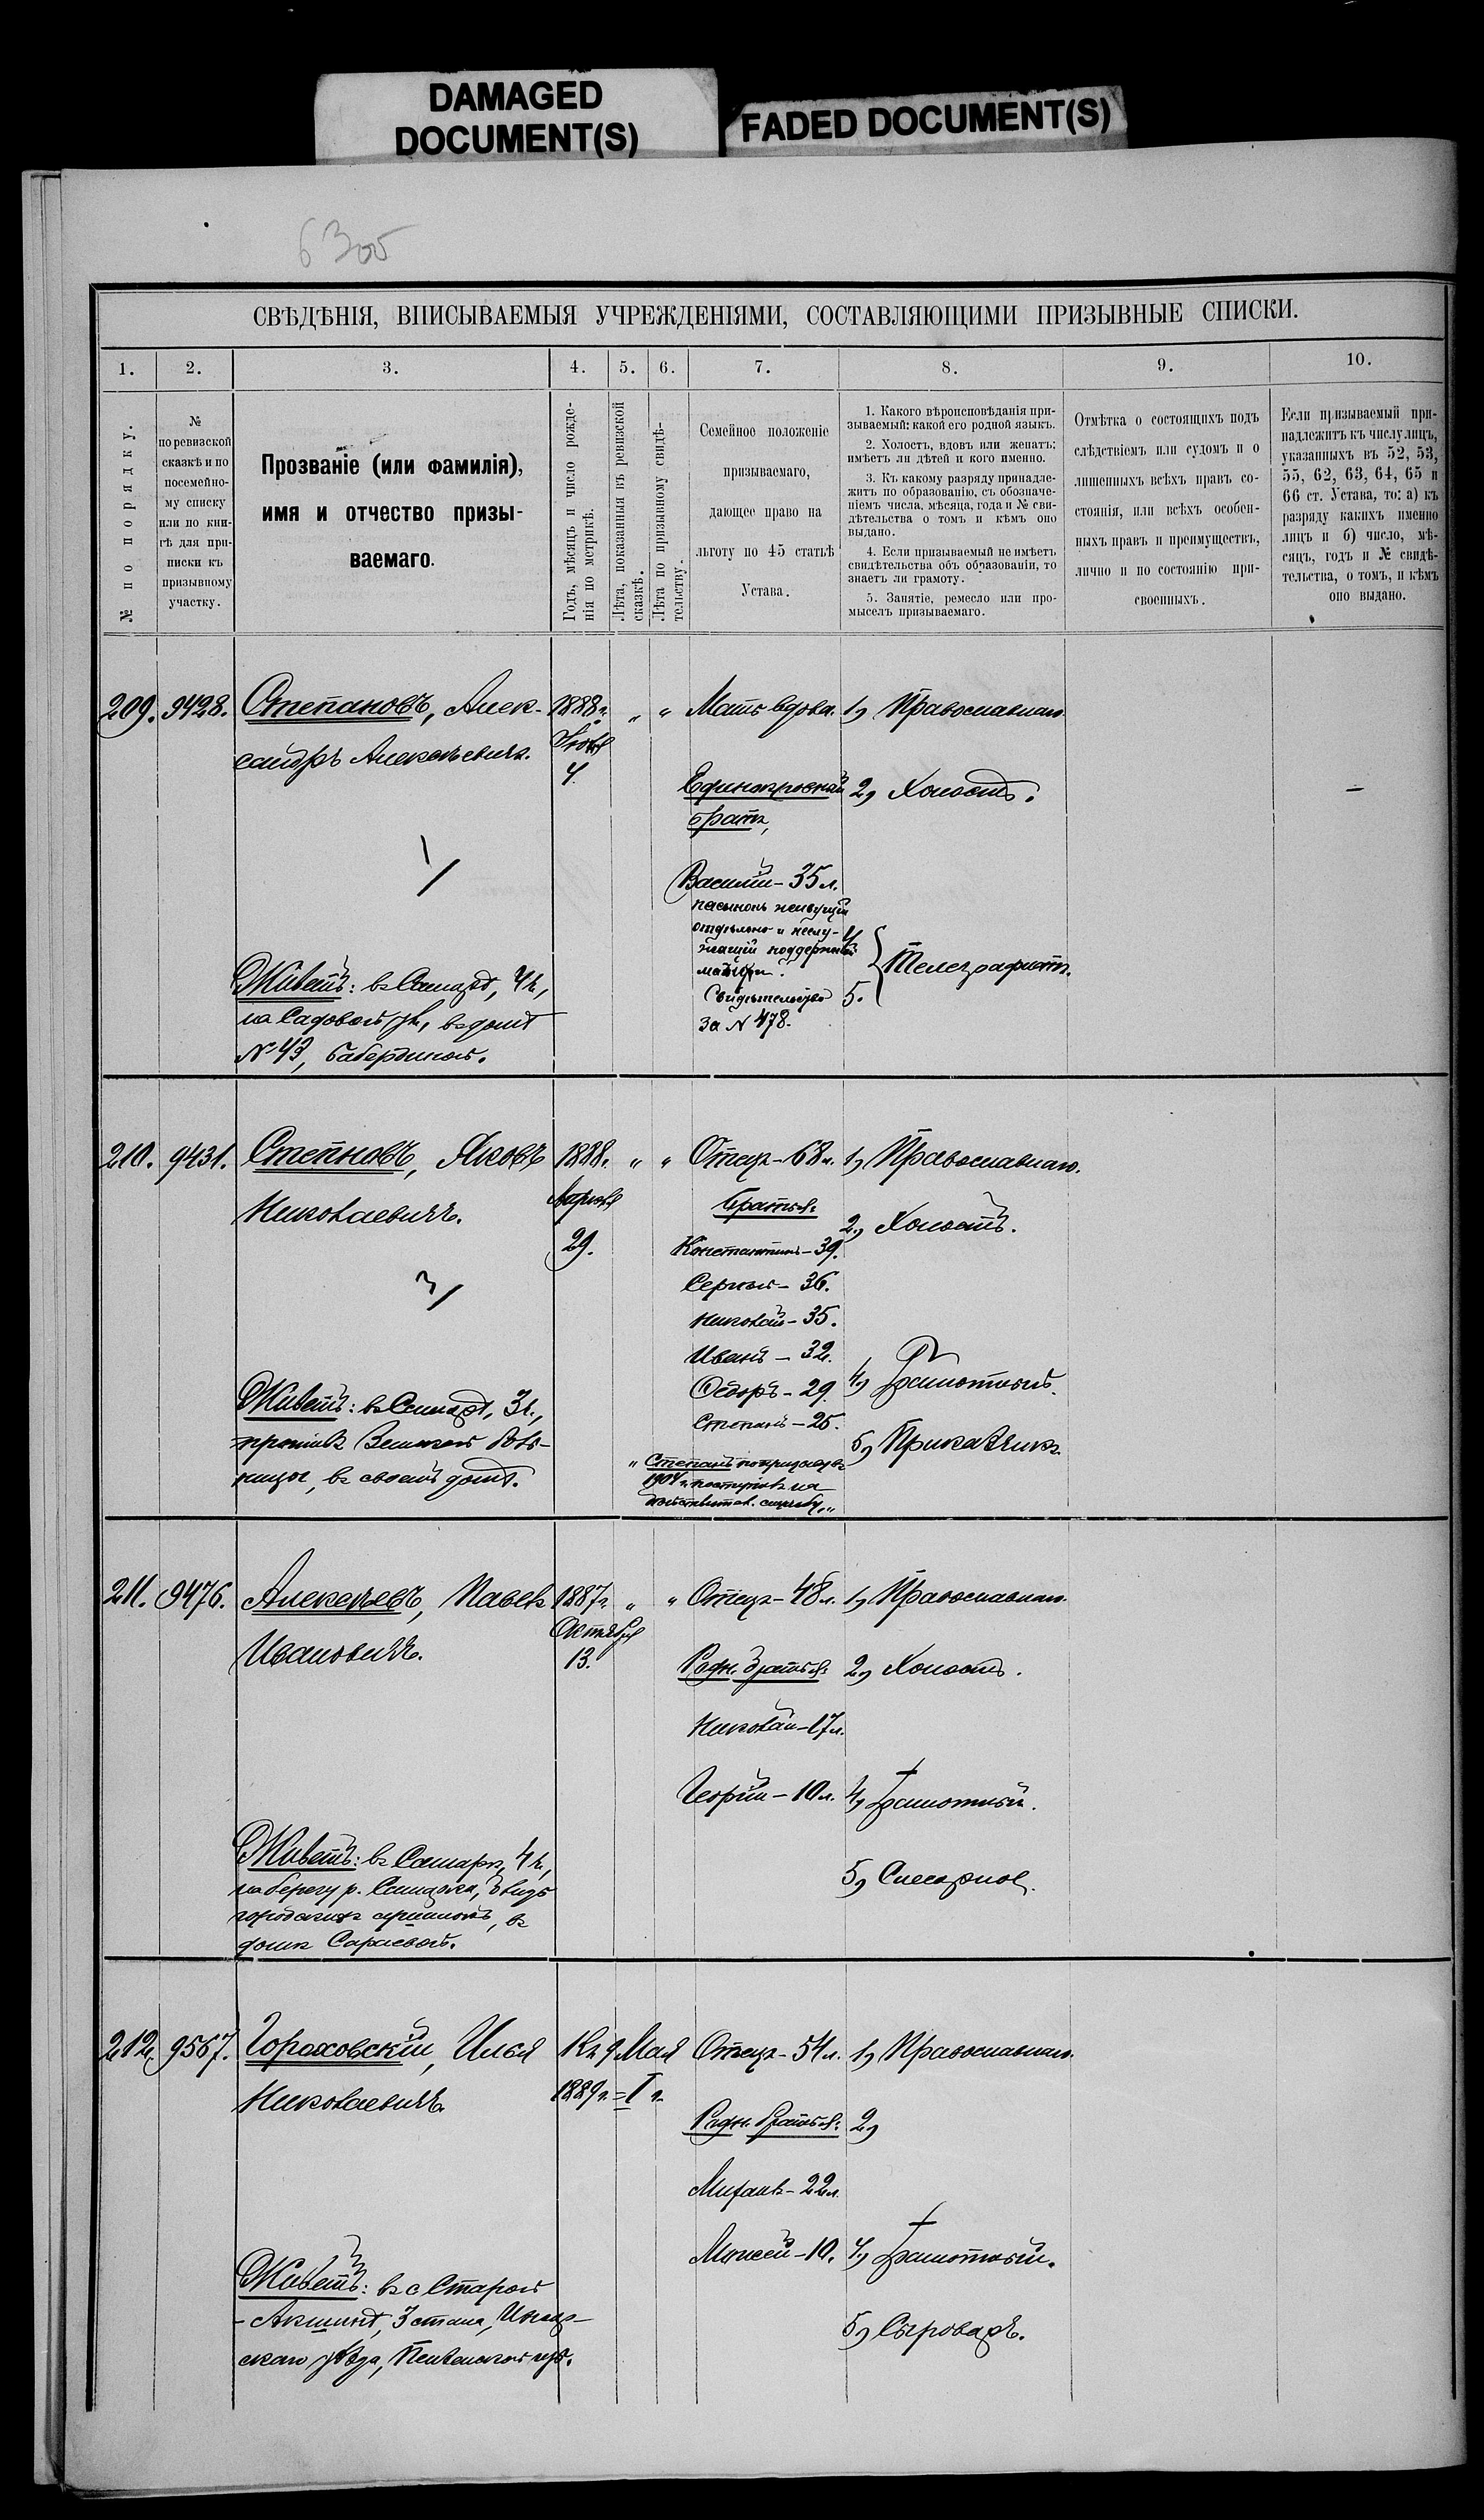 DAMAGED
DOCUMENT(S)
FADED DOCUMENT(S)
СВѢДѢНІЯ, ВПИСЫВАЕМЫЯ УЧРЕЖДЕНІЯМИ, СОСТАВЛЯЮЩИМИ ПРИЗЫВНЫЕ СПИСКИ.
1. 2. 3. 4. 5. 6. 7. 8. 9. 10.
№ по порядку.
№
по ревизской
сказкѣ и по
посемейно-
му списку
или по кни-
гѣ для при-
писки къ
призывному
участку.
Прозваніе (или фамилія),
имя и отчество призы-
ваемаго.
Годъ, мѣсяцъ и число рожде-
нія по метрикѣ.
Лѣта, показанныя въ ревизской
сказкѣ.
Лѣта по призывному свидѣ-
тельству.
Семейное положеніе
призываемаго,
дающее право на
льготу по 45 статьѣ
Устава.
1. Какого вѣроисповѣданія при-
зываемый: какой его родной языкъ.
2. Холостъ, вдовъ или женатъ;
имѣетъ ли дѣтей и кого именно.
3. Къ какому разряду принадле-
житъ по образованію, съ обозначе-
ніемъ числа, мѣсяца, года и № сви-
дѣтельства о томъ и кѣмъ оно
выдано.
4. Если призываемый не имѣетъ
свидѣтельства объ образованіи, то
знаетъ ли грамоту.
5. Занятіе, ремесло или про-
мыселъ призываемаго.
Отмѣтка о состоящихъ подъ
слѣдствіемъ или судомъ и о
лишенныхъ всѣхъ правъ со-
стоянія, или всѣхъ особен-
ныхъ правъ и преимуществъ,
лично и по состоянію при-
своенныхъ.
Если призываемый при-
надлежитъ къ числу лицъ,
указанныхъ въ 52, 53,
55, 62, 63, 64, 65 и
66 ст. Устава, то: а) къ
разряду какихъ именно
лицъ и б) число, мѣ-
сяцъ, годъ и № свидѣ-
тельства, о томъ, и кѣмъ
оно выдано.
209. 9428. Степановъ, Алек-
сандръ Алексѣевичъ.
1888г.
4.
" "
Мать вдова.
Единокровный
братъ,
Василій – 35 л.
пасынокъ живущій
отдѣльно и неслу-
жащій поддержкой
матери.
Свидѣтельство
за № 478.
1, Православнаго
2, Холостъ.
4
5.
Телеграфистъ.
Живетъ: въ Самарѣ, 4 ч.,
на Садовой ул., въ домѣ
№ 43,
210. 9431. Степновъ, Яковъ
Николаевичъ.
1888г.
Апрѣля
29.
" "
Отецъ – 68 л.
братья:
Константинъ – 39.
Сергѣй – 36.
Николай – 35.
Иванъ – 32.
Ѳедоръ – 29.
Степанъ – 25.
" Степанъ по призыву въ
1904 г. поступилъ на
дѣйствител. службу "
1, Православнаго.
2, Холостъ.
4, Грамотный.
5, Приказчикъ.
Живетъ: въ Самарѣ, 3 ч.,
противъ Земской боль-
ницы, въ своемъ домѣ.
211. 9476. Алексѣевъ, Павелъ
Ивановичъ.
1887г.
Октября
13.
" "
Отецъ – 48 л.
Родн. братья:
Николай – 17 л.
Георгій – 10 л.
1, Православнаго.
2, Холостъ.
4, Грамотный.
5, Слесарное.
Живетъ: въ Самарѣ, 4 ч.,
на берегу р. Самарка,
въ
домѣ Сараевой.
212. 9567. Гороховскій, Илья
Николаевичъ.
Къ 9 Мая
1889 г. = I г.
Отецъ – 54 л.
Родн. братья:
Михаилъ – 22 л.
Моисей – 10.
1, Православнаго.
2,
4, Грамотный.
5, Сыроваръ.
Живетъ: въ с Старой
-Акшинѣ, 3 стана, Инсар-
скаго уѣзда, Пензенской губ.